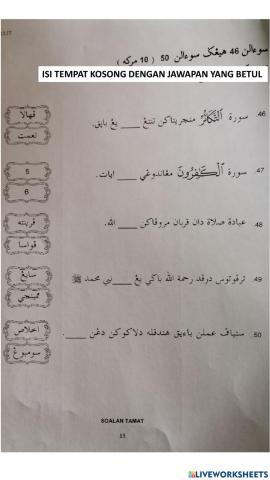 سوءالن 46 هيڠݢ سوءالن 50 ( 10 مركه )
ISI TEMPAT KOSONG DENGAN JAWAPAN YANG BETUL
46. سورة ٱلتَّكَاثُرُ منچريتاكن تنتڠ ____ يڠ باڽق.
ڤهالا
نعمت
47. سورة ٱلْكَٰفِرُونَ مڠاندوڠي ____ ايات.
5
6
48. عبادة صلاة دان قربان مروڤاكن ____ الله.
ڤرينته
كواسا
49. ترڤوتوس درڤد رحمة الله باݢي يڠ ____ نبي محمد ﷺ
سايڠ
ممبنچي
50. ستياڤ عملن باءيق هندقله دلاكوكن دڠن ____.
اخلاص
سومبوڠ
SOALAN TAMAT
13
LIVEWORKSHEETS